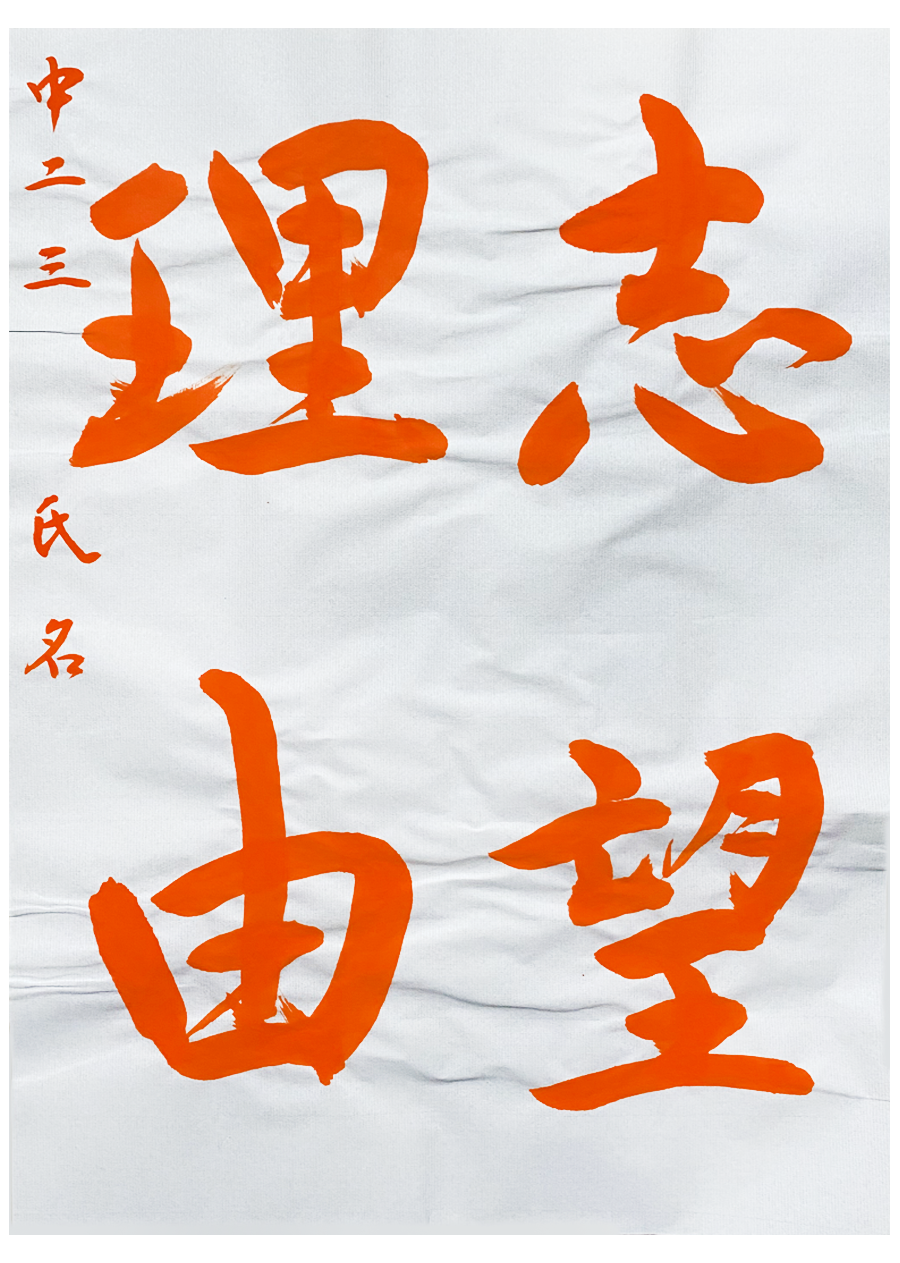 志望
理由
中二三
氏名